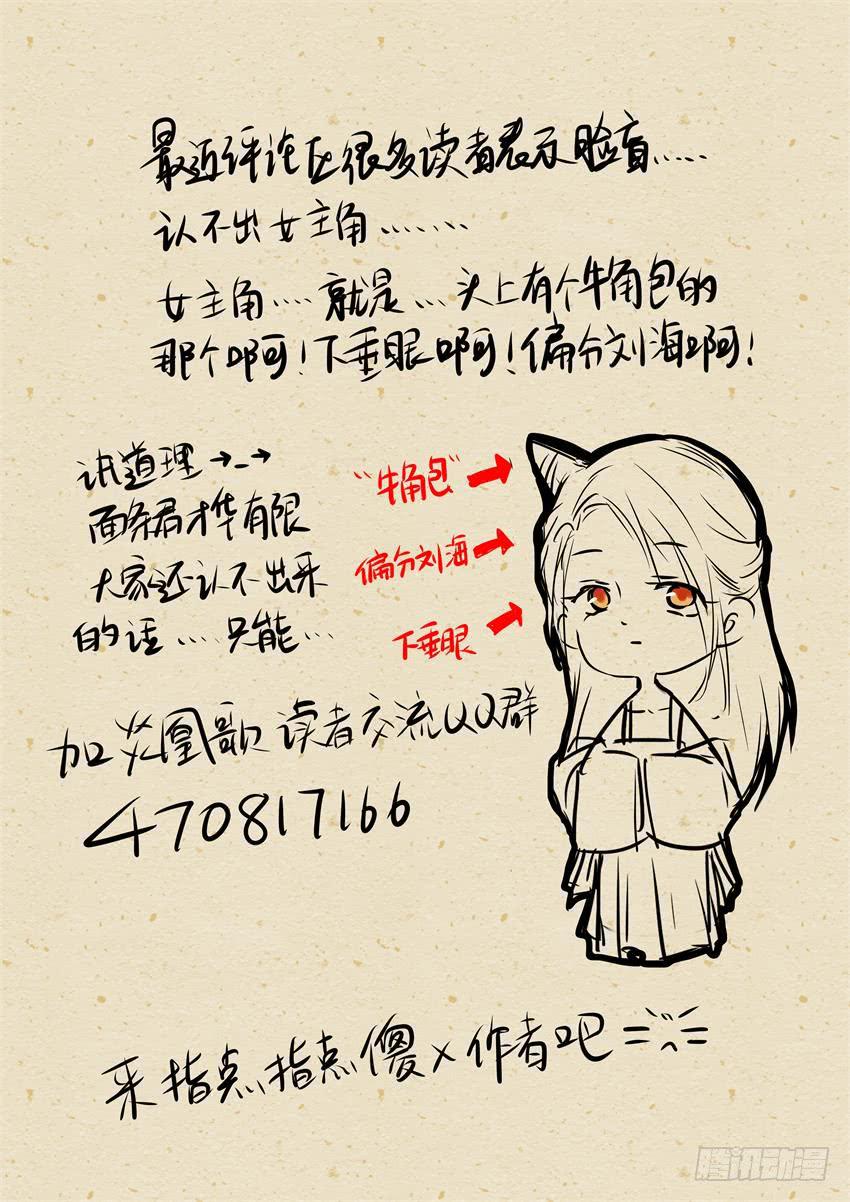 最近评论区很多读者表示脸盲……
认不出女主角…….
女主角….就是…头上有个牛角包的
那个啊!下垂眼啊!偏分刘海啊!
讲道理→_→
面条君才华有限
大家还认不出来
的话…只能…
"牛角包"
偏分刘海
下垂眼
加火凰歌读者交流QQ群
470817166
来指点指点傻x作者吧=
腾讯动漫